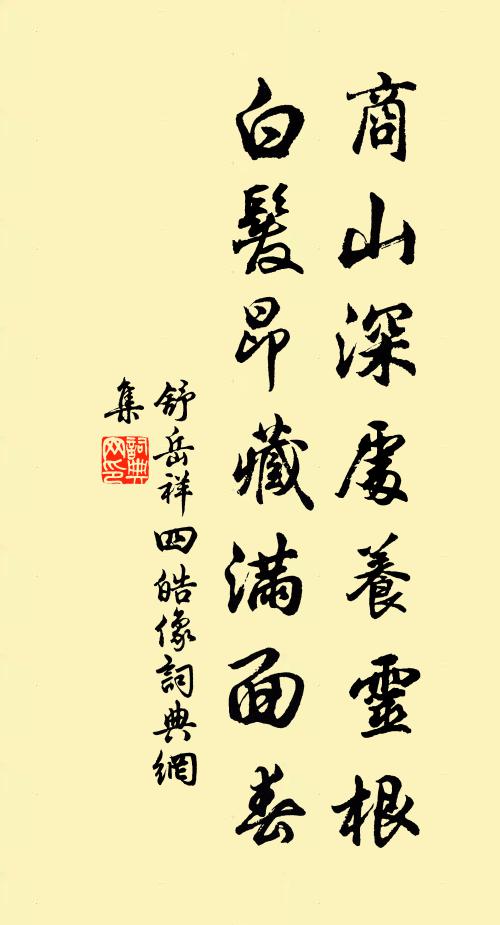 商山深處養靈根
白髮昂藏滿面春
舒岳祥四皓像詞典網
集
詞典網